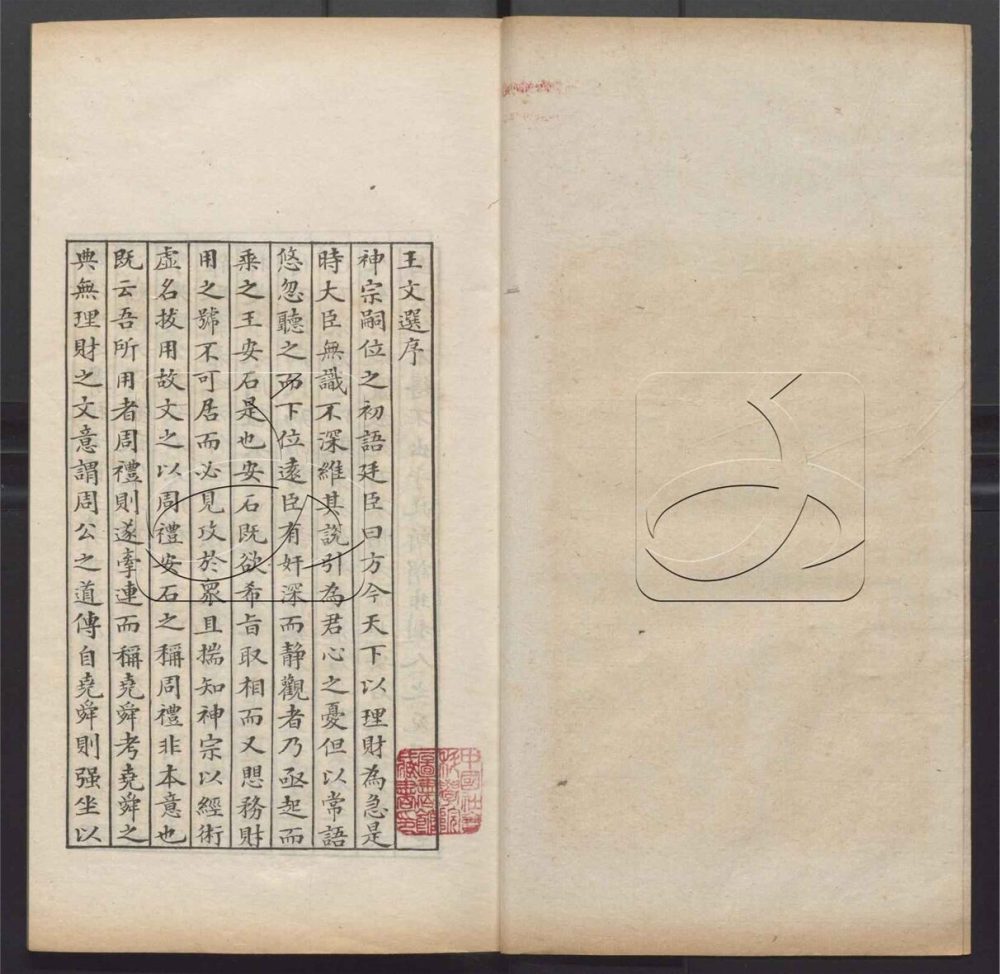 王文選序
神宗嗣位之初語廷臣曰方今天下以理財為急是
時大臣無識不深維其說引為君心之憂但以常語
悠忽聽之而下位遠臣有奸深而靜觀者乃亟起而
乘之王安石是也安石既欲希旨取相而又思務財
用之號不可居而必見攻於眾且揣知神宗以經術
虛名拔用故文之以周禮安石之稱周禮非本意也
既云吾所用者周禮則遂牽連而稱堯舜考堯舜之
典無理財之文意謂周公之道傳自堯舜則强坐以